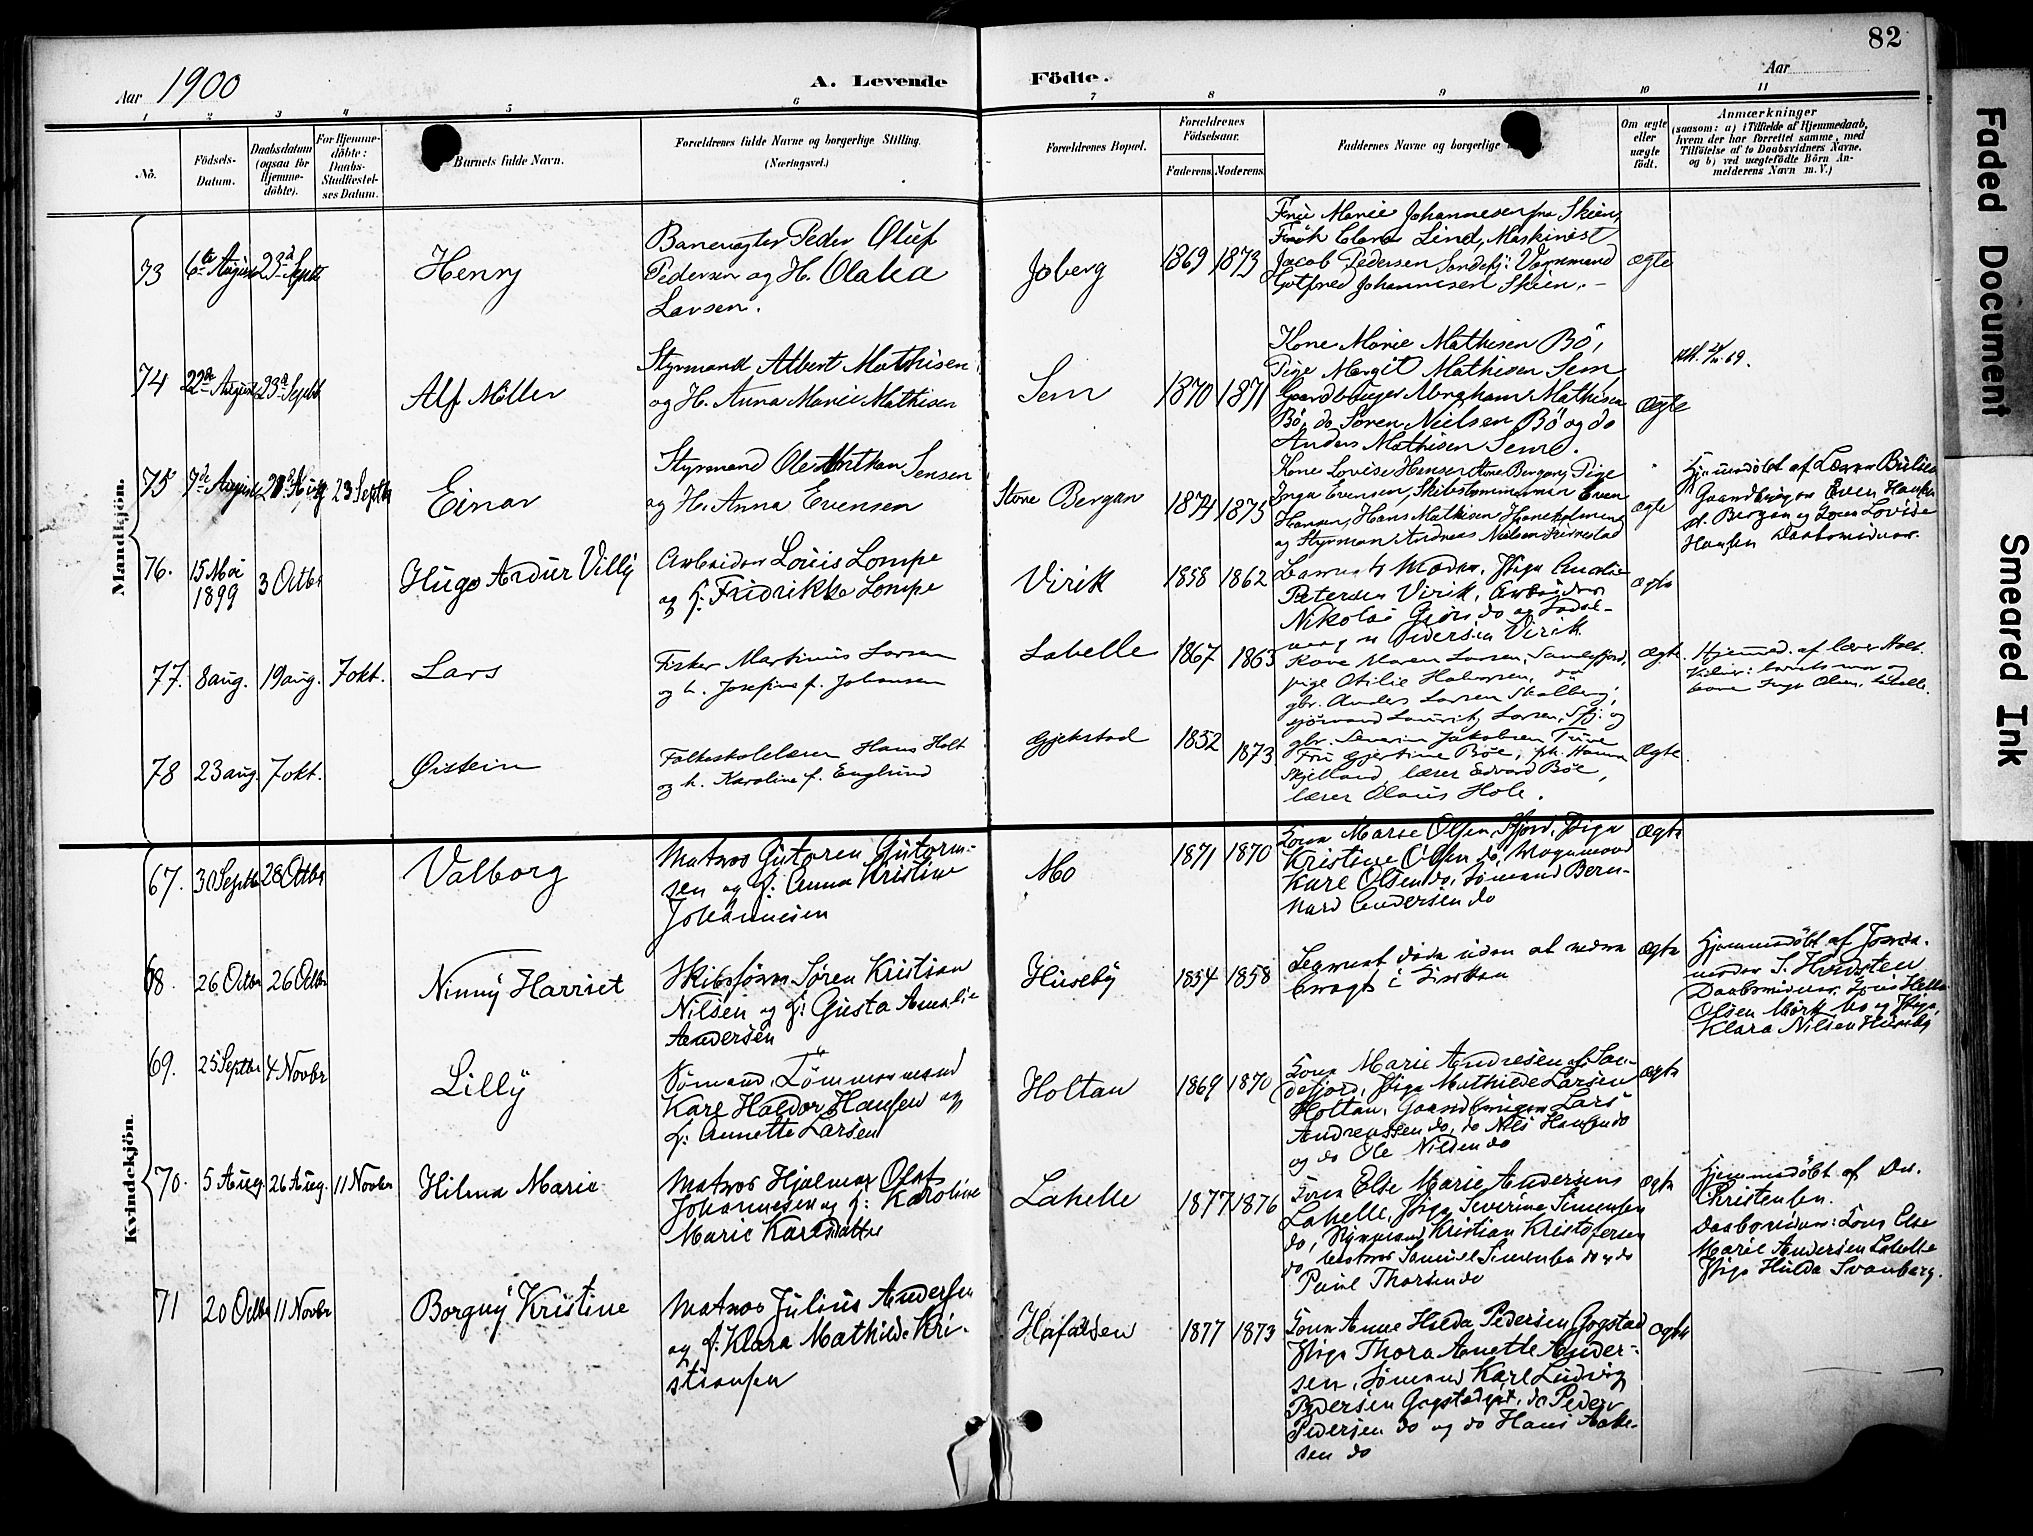 82
Aar 1900
A. Levende Födte.
Aar
1 2 3 4 5 6 7 8 9 10 11
No.
Födsels-Datum.
Daabsdatum (ogsaa for Hjemmedöbte).
For Hjemmedöbte: Daabs-Stadfæstelses Datum.
Barnets fulde Navn.
Forældrenes fulde Navne og borgerlige Stilling. (Næringsvei.)
Forældrenes Bopæl.
Forældrenes Födselsaar.
Faderens. Moderens.
Faddernes Navne og borgerlige
Om ægte eller uægte födt.
Anmærkninger
(saasom: a) i Tilfælde af Hjemmedaab,
hvem der har forrettet samme, med
Tilföielse af to Daabsvidners Navne,
og b) ved uægtefödte Börn Anmelderens Navn m. V.)
Mandkjön.
73 6te August 23d Septb
Henry
Banevogter Peder Oluf
Pedersen og H. Olava
Larsen.
Joberg
1869 1873
Fru Marie Johannesen fra Skien,
Frøk Clara Lind, Maskinist
Jacob Pedersen Sandefj. Vognmand
Gotfred Johannesen Skien.
ægte
74 22de August 23d Septb
Alf Möller
Styrmand Albert Mathisen
og H. Anna Marie Mathisen
Sem
1870 1871
Kone Marie Mathisen Bö,
Pige Margit Mathisen Sem,
Gaardbruger Abraham Mathisen
Bö, do Sören Nielsen Bö og do
Anders Mathisen Sem.
ægte
75 7de August Aug 23 Septbr
Einar
Styrmand Ole Jensen
og H. Anna Evensen
Store Bergan
1874 1875
Kone Lovise Hansen Store Bergan, Pige
Inga Evensen, Skibstømmermand Even
Hansen, Hans Mathisen
og Styrmand Andreas Nielsen
ægte
Hjemmedöbt af
Gaardbruger Even Hansen
st. Bergan og Kone Lovise
Hansen Daabsvidner.
76. 15 Mai 1899 3 Octbr
Hugo Ardur Villy
Arbeider Louis Lompe
og h. Fridrikke Lompe
Virik
1858 1862
Barnets Moder, Pige Amalie
Petersen Virik, Arbeider
Nikolai Gjön do og
Pedersen Virik
ægte
77. 8 aug. 19 aug. 7 okt.
Lars
Fisker Martinus Larsen
og h. Josefine f. Johansen
Lahelle
1867 1863
Kone Maren Larsen, Sandefjord,
pige Otilie Halvorsen, do
gbr. Anders Larsen Skolberg,
sjömand Laurits Larsen, Sfj. og
gbr. Severin Jakobsen Tuve
ægte
Hjemmed. af lærer Holt.
Vidner: barnets mor og
kone Inga Olsen, Lahelle.
78 23 aug. 7 okt.
Øistein
Folkeskolelærer Hans Holt
og h. Karoline f. Englund
Gjekstad
1852 1873
Fru Gjertine Böe, frk. Hanna
Skjelland, lærer Edvard Böe,
lærer Olaus Hole.
ægte.
Kvindekjön.
67. 30 Septbr 28 Octbr
Valborg
Matros Gutoren Gutorm-
sen og h. Anna Kristine
Johannesen
Mo
1871 1870
Kone Marie Olsen Fjord, Pige
Kristine Olsen do, Vognmand
Karl Olsen do, Sömand Bern-
hard Andersen do
ægte
68. 26 Octbr 26 Octbr
Ninny Harriet
Skibsförer Søren Kristian
Nilsen og h: Gusta Amalie
Andersen
Huseby
1854 1858
Barnet döde uden at være
bragt i Kirken
ægte
Hjemmedöbt af Jorde-
moder S. Hvidsten
Daabsvidner Kone Helle
Olsen Mörk Mo og Pige
Klara Nilsen Huseby
69. 25 Septbr 4 Novbr
Lilly
Sömand, Tömmermand
Karl Haldor Hansen og
h: Annette Larsen
Holtan
1869 1870
Kone Marie Andresen af San-
defjord, Pige Mathilde Larsen
Holtan, Gaardbruger Lars
Andreassen do, do Nils Hansen do
og do Ole Nilsen do
ægte
70. 5 Aug 26 Aug. 11 Novbr
Hilma Marie
Matros Hjalmar Olaf
Johannesen og h: Karoline
Marie Karlsdatter
Lahelle
1877 1876
Kone Else Marie Andersen
Lahelle, Pige Severine Simonsen
do, Styrmand Kristian Kristofersen
do, Matros Samuel Simonsen do og do
Paul Thorsen do
ægte
Hjemmedöbt af Dr.
Christensen.
Daabsvidner: Kone Else
Marie Andersen Lahelle
Pige Hulda Svanberg.
71 20 Octbr 11 Novbr
Borgny Kristine
Matros Julius Andersen
og h. Klara Mathilde Kri-
stiansen
1877 1873
Kone Anne Hilda Pedersen Gogstad
Pige Thora Anette Ander-
sen, Sömand Karl Ludvig
Pedersen Gogstad, do Peder
Pedersen do og do Hans
sen do
ægte
Faded Document
Smeared Ink